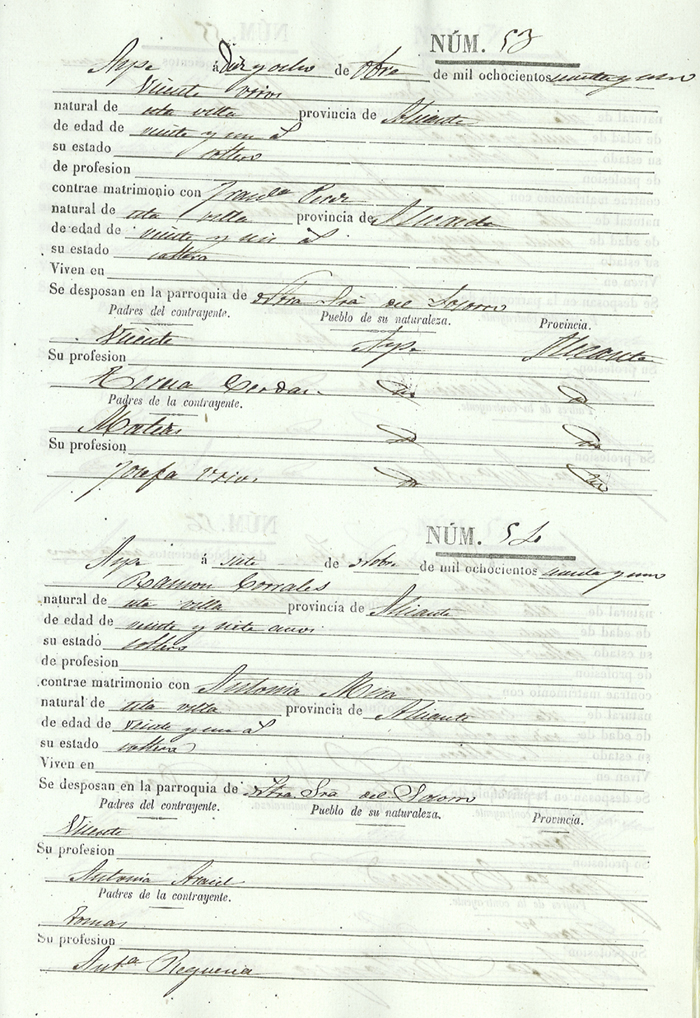 NÚM. 53
Aspe á Diez y ocho de Obre de mil ochocientos
Vicente
natural de esta villa provincia de Alicante
de edad de veinte y un a.s
su estado soltero
de profesion
contrae matrimonio con Fran.ca Perez
natural de esta villa provincia de Alicante
de edad de veinte y seis a.s
su estado soltera
Viven en
Se desposan en la parroquia de Ntra Sra del Socorro
Padres del contrayente. Pueblo de su naturaleza. Provincia.
Vicente Aspe Alicante
Su profesion
Cerdan
Padres de la contrayente.
Matias
Su profesion
Josefa
NÚM. 54
Aspe á siete de Nobre de mil ochocientos
Ramon Corrales
natural de esta villa provincia de Alicante
de edad de veinte y siete anos
su estado soltero
de profesion
contrae matrimonio con Antonia Mira
natural de esta villa provincia de Alicante
de edad de veinte y un a.s
su estado soltera
Viven en
Se desposan en la parroquia de Ntra Sra del Socorro
Padres del contrayente. Pueblo de su naturaleza. Provincia.
Vicente
Su profesion
Antonia
Padres de la contrayente.
Tomas
Su profesion
Ant.a